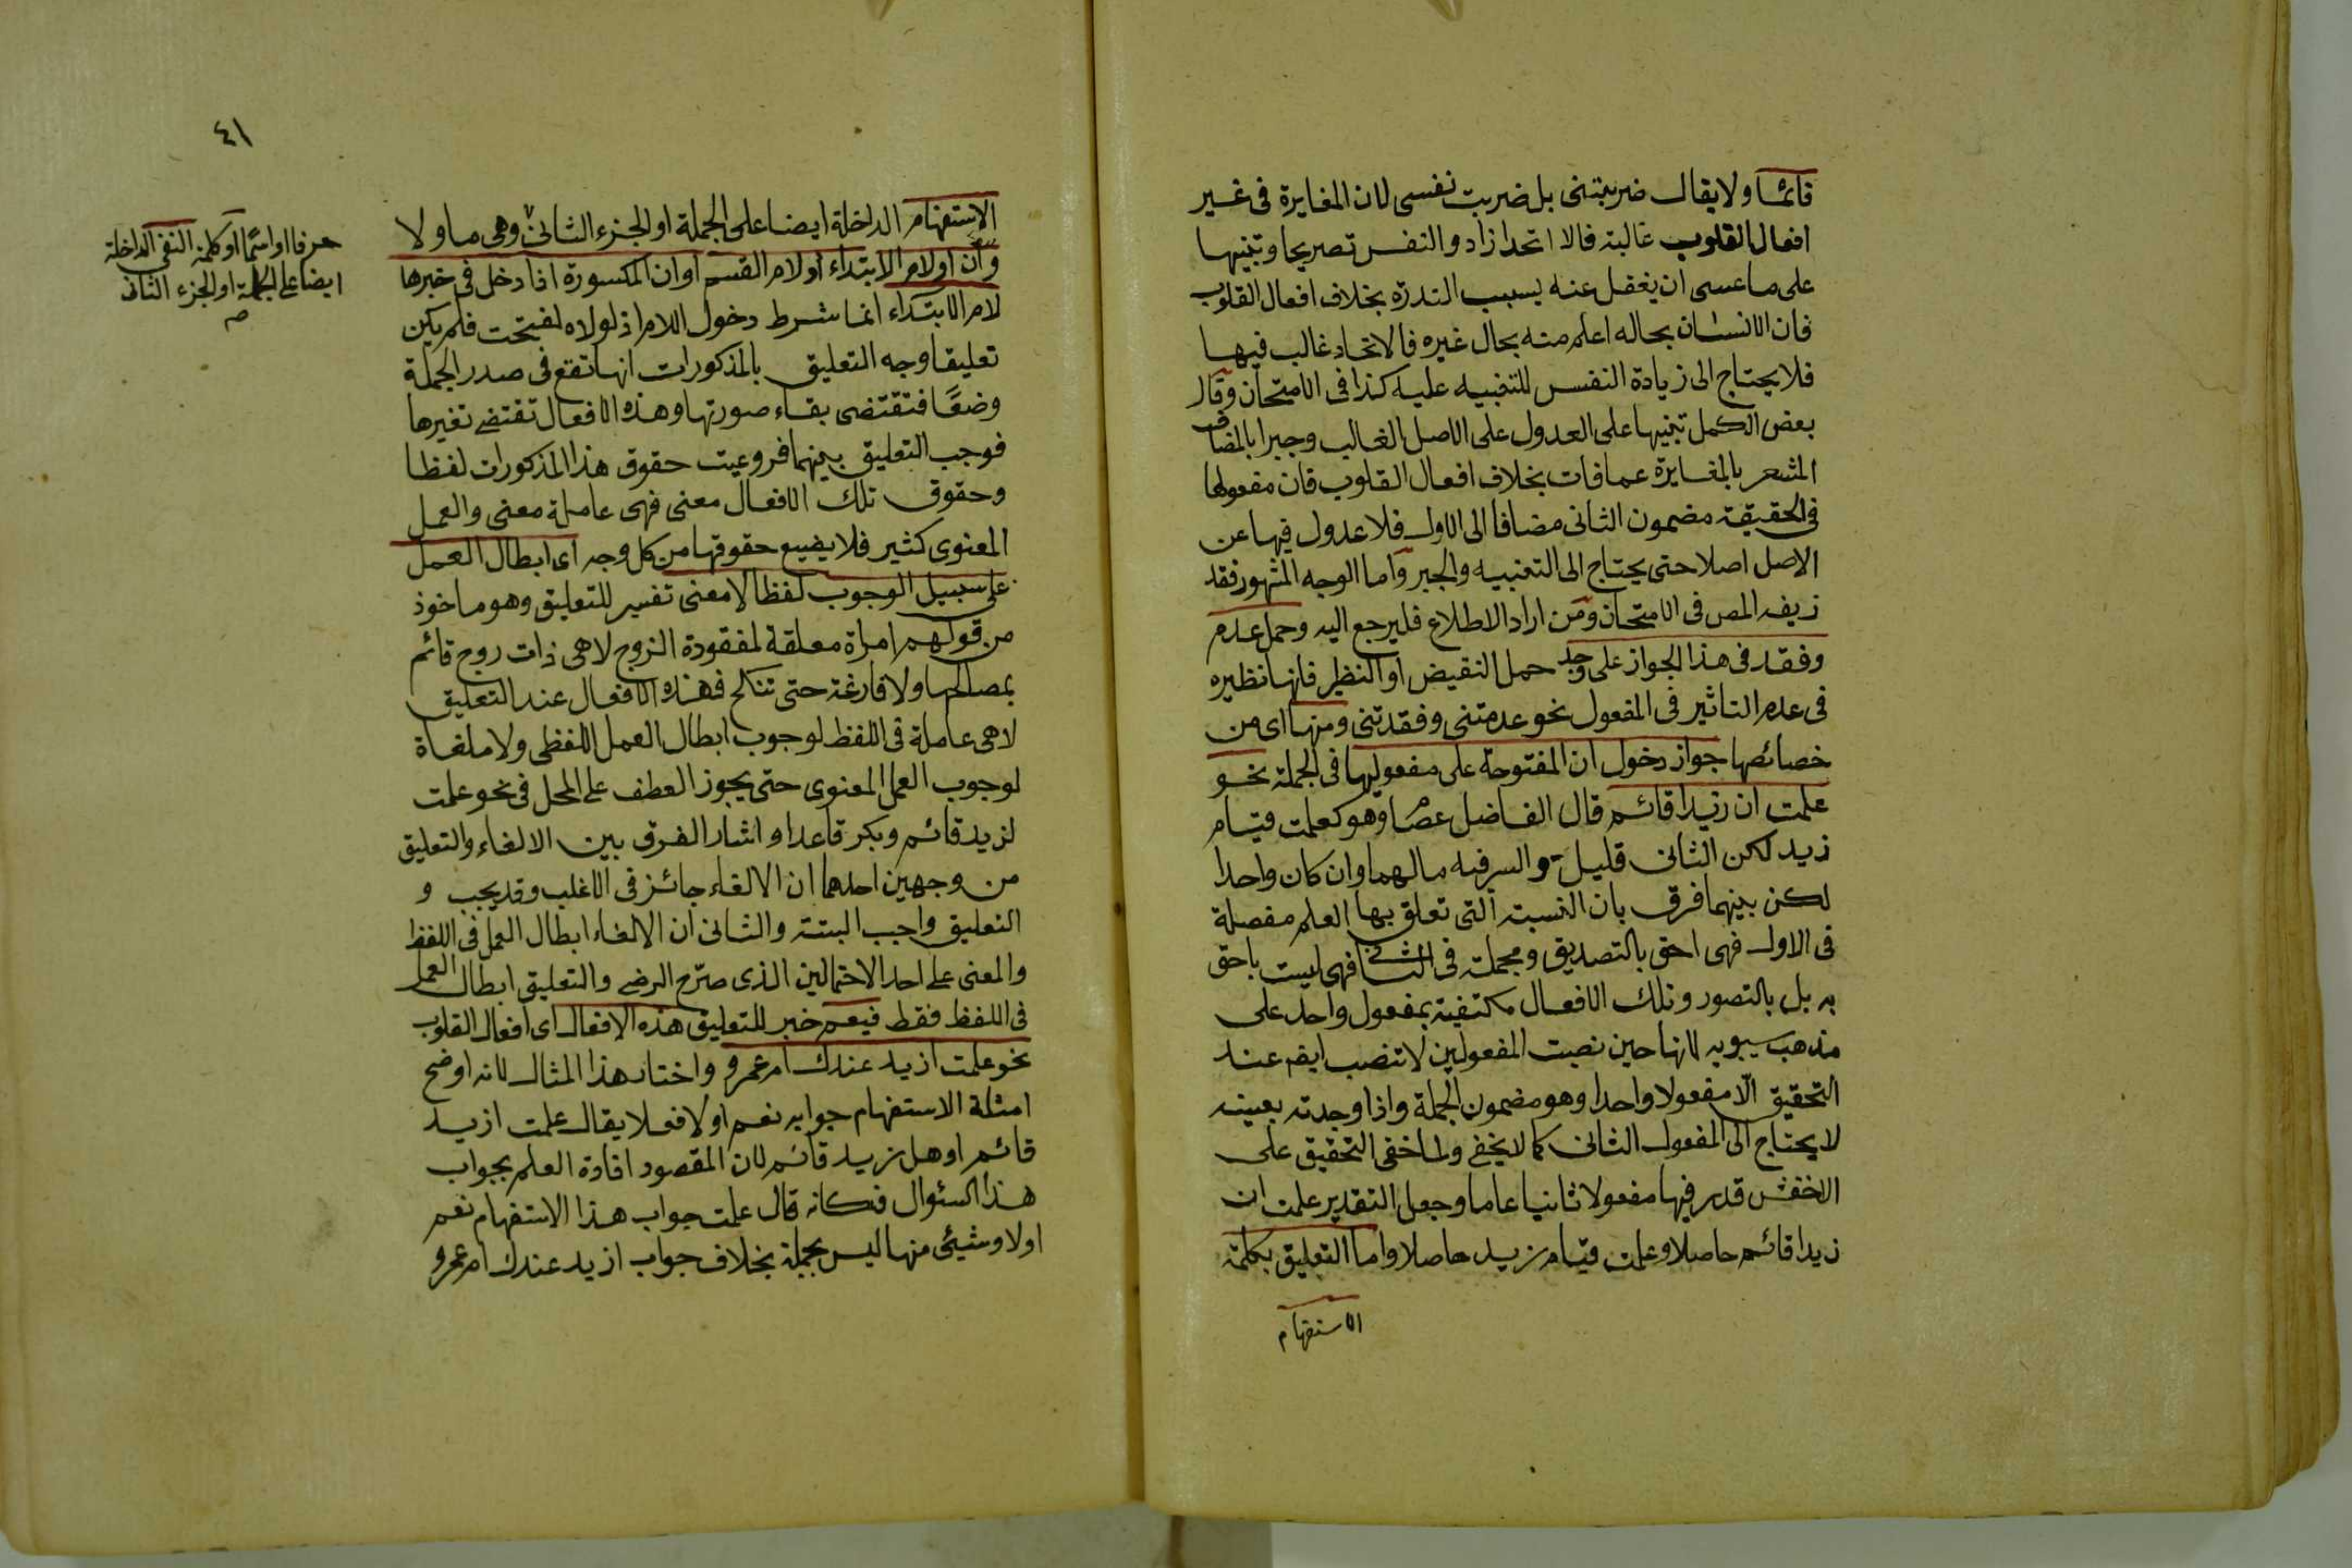 قائما ولا يقال ضربتنى بل ضربت نفسى لان المغايرة فى غير
افعال القلوب غالبة فالا اتحدا زاد والنفس تصريحا وتنبيها
على ما عسى ان يغفل عنه بسبب الندرة بخلاف افعال القلوب
فان الانسان بحاله اعلم منه بحال غيره فالاتحاد غالب فيها
فلا يحتاج الى زيادة النفس للتنبيه عليه كذا فى الامتحان وقال
بعض الكمل تنبيها على العدول على الاصل الغالب وجبرا بالمضاف
المشعر بالمغايرة عما فات بخلاف افعال القلوب فان مفعولها
فى الحقيقة مضمون الثانى مضافا الى الاول فلا عدول فيها عن
الاصل اصلا حتى يحتاج الى التنبيه والجبر واما الوجه المشهور فقد
زيفه المص فى الامتحان ومن اراد الاطلاع فليرجع اليه وحمل عدم
وفقد فى هذا الجواز على وجد حمل النقيض او النظير فانها نظيره
فى عدم التاثير فى المفعول نحو عدمتنى وفقدتنى ومنها اى من
خصائصها جواز دخول ان المفتوحة على مفعوليها فى الجملة نحو
علمت ان زيدا قائم قال الفاضل عصام وهو كعلمت قيام
زيد لكن الثانى قليل والسر فيه ما لهما وان كان واحدا
لكن بينهما فرق بان النسبة التى تعلق بها العلم مفصلة
فى الاول فهى احق بالتصديق ومجملة فى الثانى فهى ليست باحق
به بل بالتصور وتلك الافعال مكتفية بمفعول واحد على
مذهب سيبويه لانها حين نصبت المفعولين لا تنصب ايضم عند
التحقيق الّا مفعولا واحدا وهو مضمون الجملة واذا وجدته بعينه
لا يحتاج الى المفعول الثانى كما لا يخفى ولما خفى التحقيق على
الاخفش قدر فيها مفعولا ثانيا عاما وجعل التقدير علمت ان
زيدا قائم حاصلا وعلمت قيام زيد حاصلا واما التعليق بكلمة
الاستفهام
٤١
الاستفهام الداخلة ايضا على الجملة او الجزء الثانى وهى ما ولا
وان او لام الابتداء او لام القسم او ان المكسورة اذا دخل فى خبرها
لام الابتداء انما شرط دخول اللام اذ لولاه لفتحت فلم يكن
تعليقا وجه التعليق بالمذكورات انها تقع فى صدر الجملة
وضعًا فتقتضى بقاء صورتها وهذه الافعال تقتضى تغيرها
فوجب التعليق بينهما فروعيت حقوق هذا المذكورات لفظا
وحقوق تلك الافعال معنى فهى عاملة معنى والعمل
المعنوى كثير فلا يضيع حقوقها من كل وجه اى ابطال العمل
على سبيل الوجوب لفظا لا معنى تفسير للتعليق وهو ماخوذ
من قولهم امراة معلقة لمفقودة الزوج لا هى ذات روج قائم
بمصالحها ولا فارغة حتى تنكح فهذه الافعال عند التعليق
لا هى عاملة فى اللفظ لوجوب ابطال العمل اللفظى ولا ملغاة
لوجوب العمل المعنوى حتى يجوز العطف على المحل فى نحو علمت
لزيد قائم وبكر قاعدا واشار الفرق بين الالغاء والتعليق
من وجهين احدهما ان الالغاء جائز فى الاغلب وقد يجب و
التعليق واجب البتة والثانى ان الالغاء ابطال العمل فى اللفظ
والمعنى على احد الاحتمالين الذى صرّح الرضى والتعليق ابطال العمل
فى اللفظ فقط فيعم خبر للتعليق هذه الافعال اى افعال القلوب
نحو علمت ازيد عندك ام عمرو واختار هذا المثال لانه اوضح
امثلة الاستفهام جوابه نعم او لا فعلا يقال علمت ازيد
قائم او هل زيد قائم لان المقصود افادة العلم بجواب
هذا السئوال فكانه قال علمت جواب هذا الاستفهام نعم
او لا وشيئى منها ليس بجملة بخلاف جواب ازيد عندك ام عمرو
حرفا او اسمًا او كلمة النفى الداخلة
ايضا على الجملة او الجزء الثانى